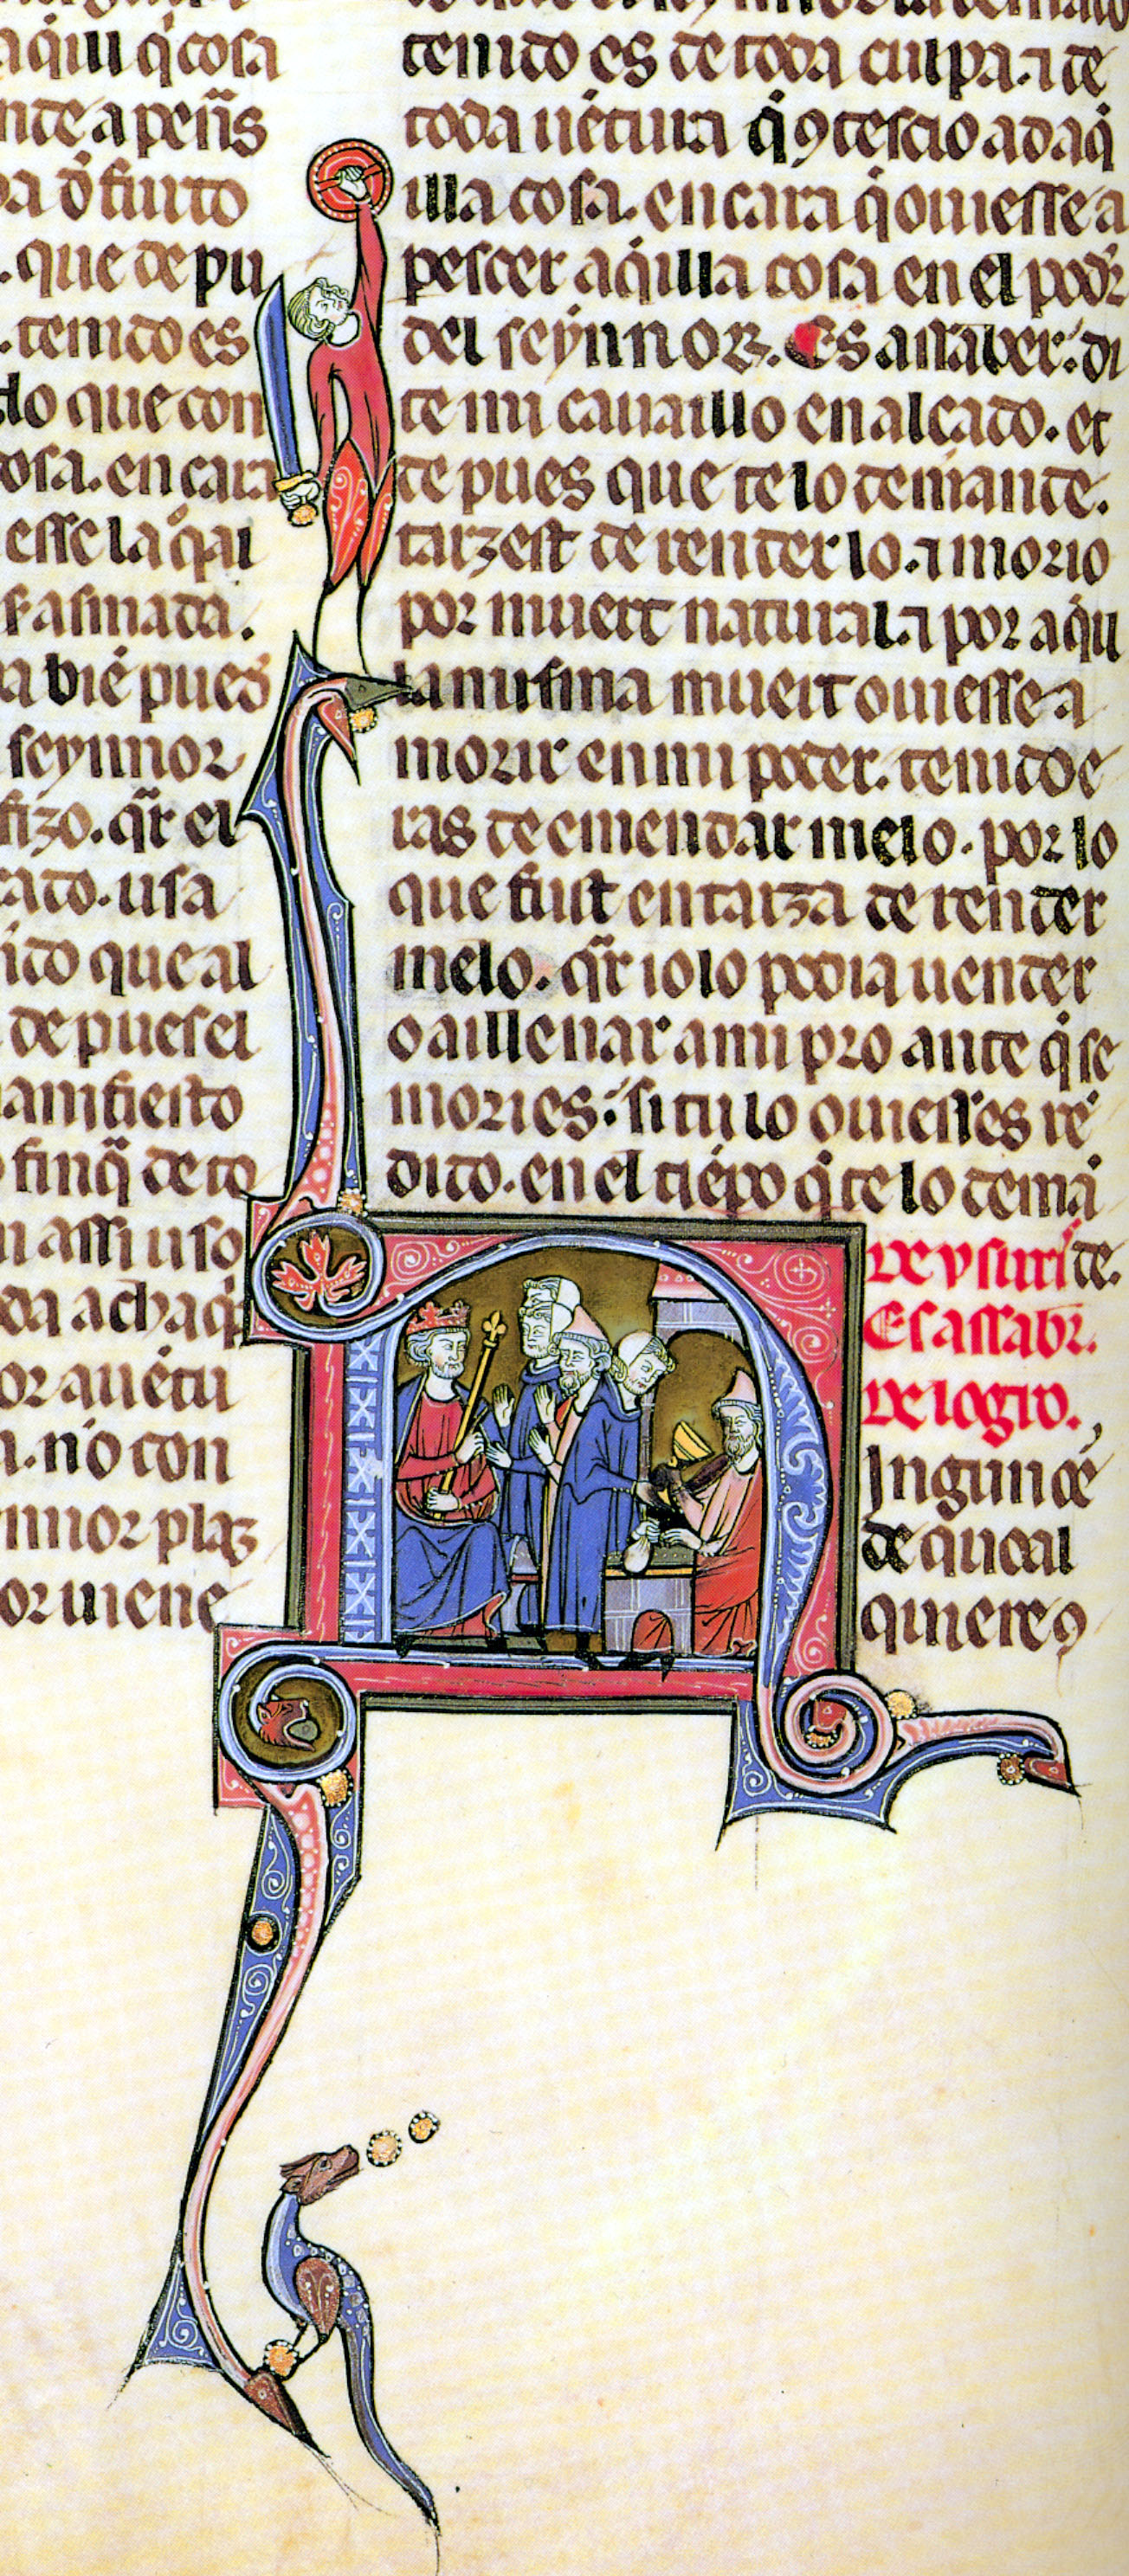 aq̇ill q̇ cosa
nte a peñs
da d̓ furto
. que de pu
. tenido es
do que con
osa. en cara
esse la q̇al
asmada.
bié pues
seynnor
fizo. q̃r el
cado. usa
ido que al
de pues el
anifiesto
finq̃ de to
assi uso
da achaq̇
or auétu
a. no con
nnor plaz
or uiene
tenido es de toda culpa. ⁊ de
toda uétura q̇ ꝯtescio ad aq̇
illa cosa. en cara q̇ ouiesse a
pescer aq̇illa cosa en el pod̓r
del seynnor. Es assaber. di
te mi cauaillo en alcado. et
de pues que te lo demande.
tarzest de render lo. ⁊ morio
por muert natural. ⁊ por aq̇u
la misma muert ouiesse a
morir en mi poder. tenido e
ras de emendar me lo. por lo
que fust en tarza de render
melo. q̃r io lo podia uender
o aillenar a mi pro ante q̇ se
mories. si tu lo ouiesses re
dido. en el tiépo q̇ te lo demá
de. De vsuris
Es assabr.
de logro.
Inguno
de qual
quiere ꝯ